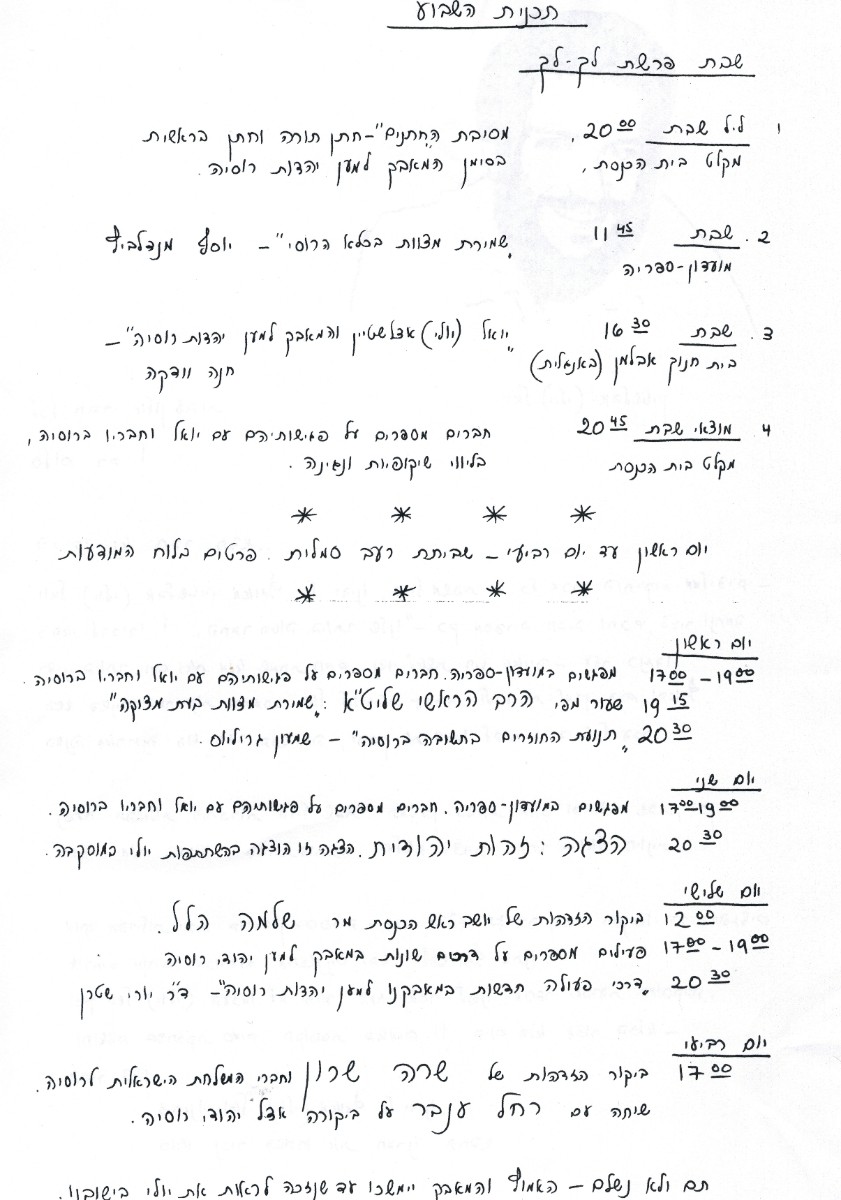 תכנית השבוע
שבת פרשת לך-לך
1 ליל שבת 20 00, מסיבת החתנים"-חתן תורה וחתן בראשית
מקלט בית הכנסת, בסימן המאבק למען יהדות רוסיה.
2. שבת 11 45 "שמירת מצוות בכלא הרוסי" – יוסף מנדלביץ
מועדון-ספריה
3. שבת 16 30 "יואל (יולי) אדלשטיין והמאבק למען יהדות רוסיה" –
בית חנוך אבלמן (באנגלית) חנה וודקה
4 מוצאי שבת 20 45 חברים מספרים על פגישותיהם עם יואל וחבריו ברוסיה,
מקלט בית הכנסת בליווי שיקופיות ונגינה.
* * * *
יום ראשון עד יום רביעי – שביתת רעב סמלית. פרטים בלוח המודעות
* * * *
יום ראשון
17 00 – 19 00 מפגשים במועדון-ספריה. חברים מספרים על פגישותיהם עם יואל וחבריו ברוסיה.
19 15 שעור מפי הרב הראשי שליט"א: "שמירת מצוות בעת מצוקה"
20 30 "תנועת החוזרים בתשובה ברוסיה" – שמעון גריליוס.
יום שני
17 00 19 00 מפגשים במועדון-ספריה. חברים מספרים על פגישותיהם עם יואל וחבריו ברוסיה.
20 30 הצגה: זהות יהודית. הצגה זו הוצגה בהשתתפות יולי במוסקבה.
יום שלישי
12 00 ביקור הזדהות של יושב ראש הכנסת מר שלמה הלל.
17 00 – 19 00 פעילים מספרים על דרכים שונות במאבק למען יהודי רוסיה
20 30 "דרכי פעולה חדשות במאבקנו למען יהדות רוסיה" – ד"ר יורי שטרן
יום רביעי
17 00 ביקור הזדהות של שרה שרון וחברי המשלחת הישראלית לרוסיה.
שיחה עם רחל ענבר על ביקורה אצל יהודי רוסיה.
תם ולא נשלם – האמון והמאבק יימשכו עד שנזכה לראות את יולי בישובנו.